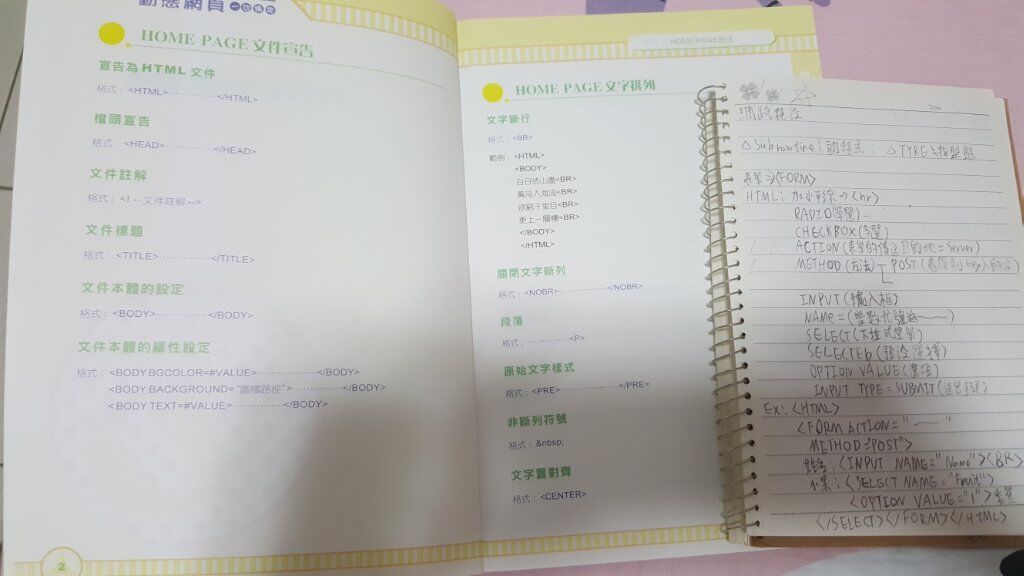 動態網頁一切搞定
HOME PAGE 文件宣告
宣告為 HTML 文件
格式：<HTML>⋯⋯⋯⋯⋯</HTML>
檔頭宣告
格式：<HEAD>⋯⋯⋯⋯</HEAD>
文件註解
格式：<! -- 文件註解 -->
文件標題
格式：<TITLE>⋯⋯⋯⋯⋯</TITLE>
文件本體的設定
格式：<BODY>⋯⋯⋯⋯⋯</BODY>
文件本體的屬性設定
格式：<BODY BGCOLOR=#VALUE>⋯⋯⋯⋯⋯⋯</BODY>
<BODY BACKGROUND="圖檔路徑">⋯⋯⋯⋯⋯</BODY>
<BODY TEXT=#VALUE>⋯⋯⋯⋯⋯</BODY>
2
HOME PAGE語法
HOME PAGE 文字排列
文字斷行
格式：<BR>
範例：<HTML>
<BODY>
白日依山盡<BR>
黃河入海流<BR>
欲窮千里目<BR>
更上一層樓<BR>
</BODY>
</HTML>
關閉文字斷列
格式：<NOBR>⋯⋯⋯⋯⋯</NOBR>
段落
格式：⋯⋯⋯⋯<P>
原始文字樣式
格式：<PRE>⋯⋯⋯⋯⋯⋯</PRE>
非斷列符號
格式：&nbsp;
文字置對齊
格式：<CENTER>
Date
網路程式
△Subroutine：副程式. △TYPE：指型態
表單⇒<FORM>
HTML：加水平線→<hr>
RADIO(單選)
CHECKBOX(多選)
ACTION(表單的傳送目的地=Server)
METHOD(方法) POST
INPUT(輸入框)
NAME=(變數代號為——)
SELECT(下拉式選單)
SELECTED(預設選擇)
OPTION VALUE
INPUT TYPE=SUBMIT(送出鍵)
Ex：<HTML>
<FORM ACTION="——"
METHOD="POST">
姓名：<INPUT NAME="Name"><BR>
水果：<SELECT NAME="Fruit">
<OPTION VALUE="1">
</SELECT></FORM></HTML>